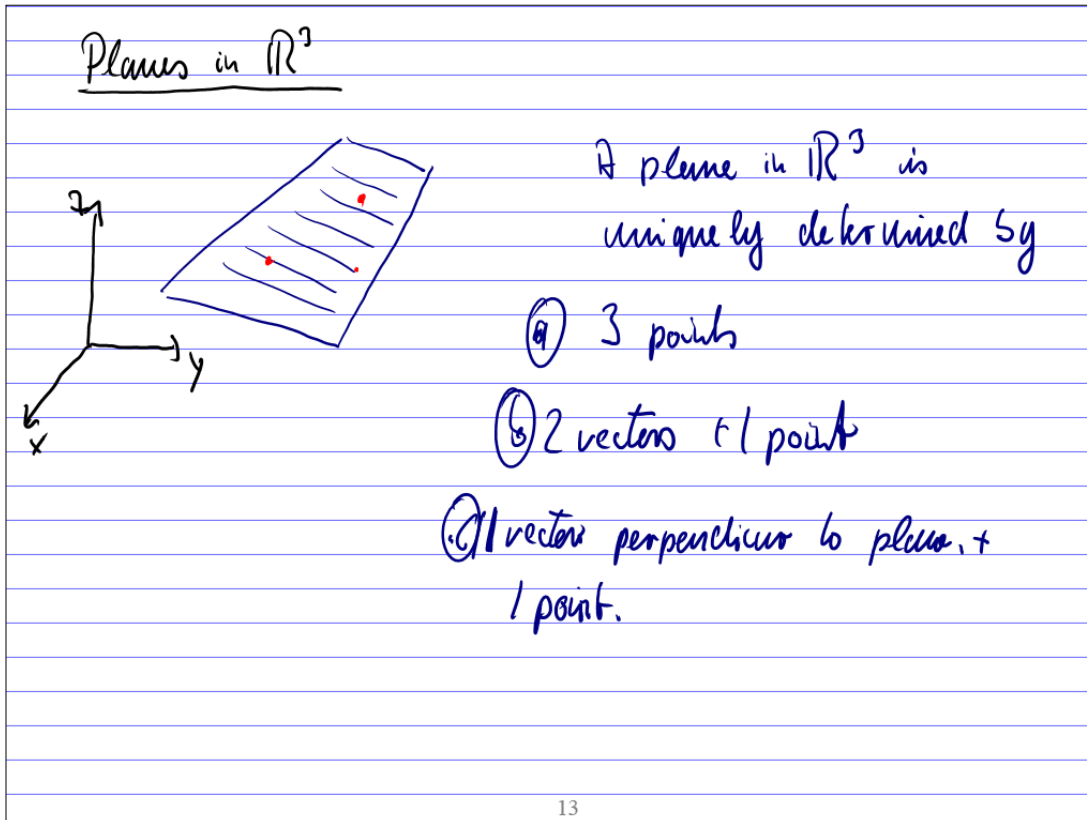 Planes in ℝ³
A plane in ℝ³ is
uniquely determined by
z
y
x
ⓐ 3 points
ⓑ 2 vectors + 1 point
ⓒ 1 vector perpendicular to plane, +
1 point.
13